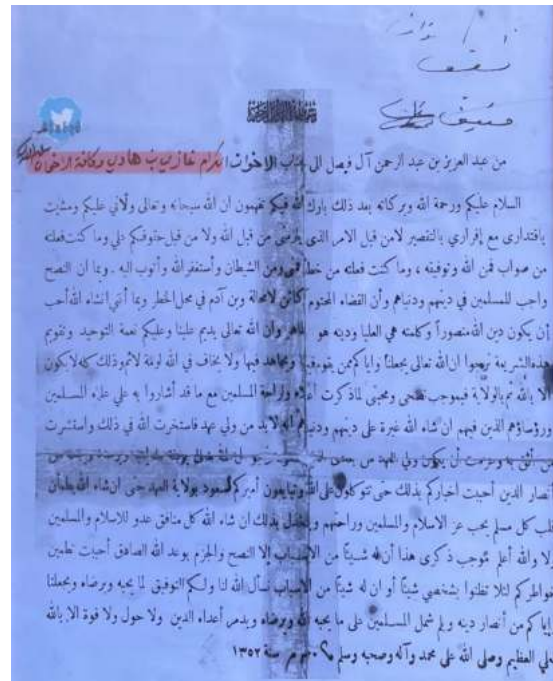 بسم الله الرحمن الرحيم
من عبد العزيز بن عبد الرحمن آل فيصل الى جناب الاخوان المكرام غازي بن هادي وكافة الاخوان
السلام عليكم ورحمة الله وبركاته بعد ذلك بارك الله فيكم تفهمون ان الله سبحانه وتعالى ولاني عليكم ومشيت
باقتداري مع إقراري بالتقصير لامن قبل الامر الذي يرضي من قبل الله ولا من قبل حقوقكم علي وما كنت فعلته
من صواب فمن الله وتوفيقه ، وما كنت فعلته من خطأ فمني ومن الشيطان وأستغفر الله وأتوب اليه . وبما ان النصح
واجب للمسلمين في دينهم ودنياهم وأن القضاء المحتوم كائن لامحالة وبن آدم في محل الخطر وبما أنني انشاء الله أحب
إن يكون دين الله منصوراً وكلمته هي العليا ودينه هو الظاهر وان الله تعالى يديم علينا وعليكم نعمة التوحيد وتقويم
هذه الشريعة نرجوا ان الله تعالى يجعلنا وإياكم ممن يقوم فيها ويجاهد فيها ولا يخاف في الله لومة لائم وذلك كله لا يكون
الا بالله ثم بالولاية فبموجب نصحي ومحبتي لما ذكرت أعلاه وراحة المسلمين مع ما قد أشاروا به علي علماء المسلمين
ورؤساؤهم الذين فيهم ان شاء الله غيرة على دينهم ودنياهم انه لابد من ولي عهد فاستخرت الله في ذلك واستشرت
من أثق به وعزمت أن يكون ولي العهد من بعدي
أنصار الدين أحببت اخباركم بذلك حتى تتوكلون على الله وتبايعون أميركم سعود بولاية العهد حتى ان شاء الله يطمأن
قلب كل مسلم يحب عز الاسلام والمسلمين وراحتهم ويخذل بذلك ان شاء الله كل منافق عدو للاسلام والمسلمين
ولا والله أعلم موجب ذكري هذا أن له شيئاً من الاسباب إلا النصح والجزم بوعد الله الصادق أحببت تطمين
خواطركم لئلا تظنوا بشخصي شيئاً أو ان له شيئاً من الاسباب نسأل الله لنا ولكم التوفيق لما يحبه ويرضاه ويجعلنا
وإياكم من أنصار دينه ويلم شمل المسلمين على ما يحبه الله ويرضاه ويدمر أعداء الدين ولا حول ولا قوة الا بالله
العلي العظيم وصلى الله على محمد وآله وصحبه وسلم محرم سنة ١٣٥٢